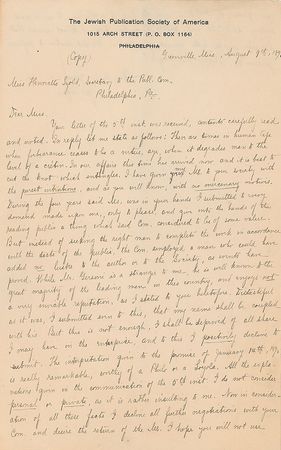 The Jewish Publication Society of America
1015 ARCH STREET (P. O. BOX 1164)
PHILADELPHIA
(Copy) Greenville, Miss, August 9th, 189
Miss Henrietta Szold, Secretary to the Publ. Com.
Philadelphia, Pa.
Dear Miss
Your letter of the 5th inst. was received, contents carefully read
and noted. In reply let me state as follows: There are times in human life
when forbearance ceases to be a virtue, aye, when it degrades man to the
level of a craven. In our affairs this time has arrived now and it is best to
cut the knot which entangles. I have given my Ms. to your society with
the purest intentions, and as you will know, with no mercenary motives.
During the four years said Ms. was in your hands I submitted to every
demand made upon me, only to please, and give into the hands of the
reading public a thing which said Com. conceded to be of some value.
But instead of seeking the right man to complete the work in accordance
with the taste of the public, the Com. employed a man who could have
added no lustre to the author or to the Society, as events have
proved. While Mr. Persons is a stranger to me, he is well known to the
great majority of the leading men in this country, and enjoys not
a very enviable reputation, as I stated to you heretofore. Distasteful
as it was, I submitted even to this, that my name shall be coupled
with his. But this is not enough, I shall be deprived of all share
I may have in the enterprise, and to this I positively decline to
submit. The interpretation given to the promise of January 14th, 190
is really remarkable, worthy of a Philo or a Loyola. All the expla-
nations given in the communication of the 5th inst. I do not consider
personal or private, as it is rather insulting to me. Now in consider-
ation of all these facts I decline all further negotiations with your
Com. and desire the return of the Ms. I hope you will not use